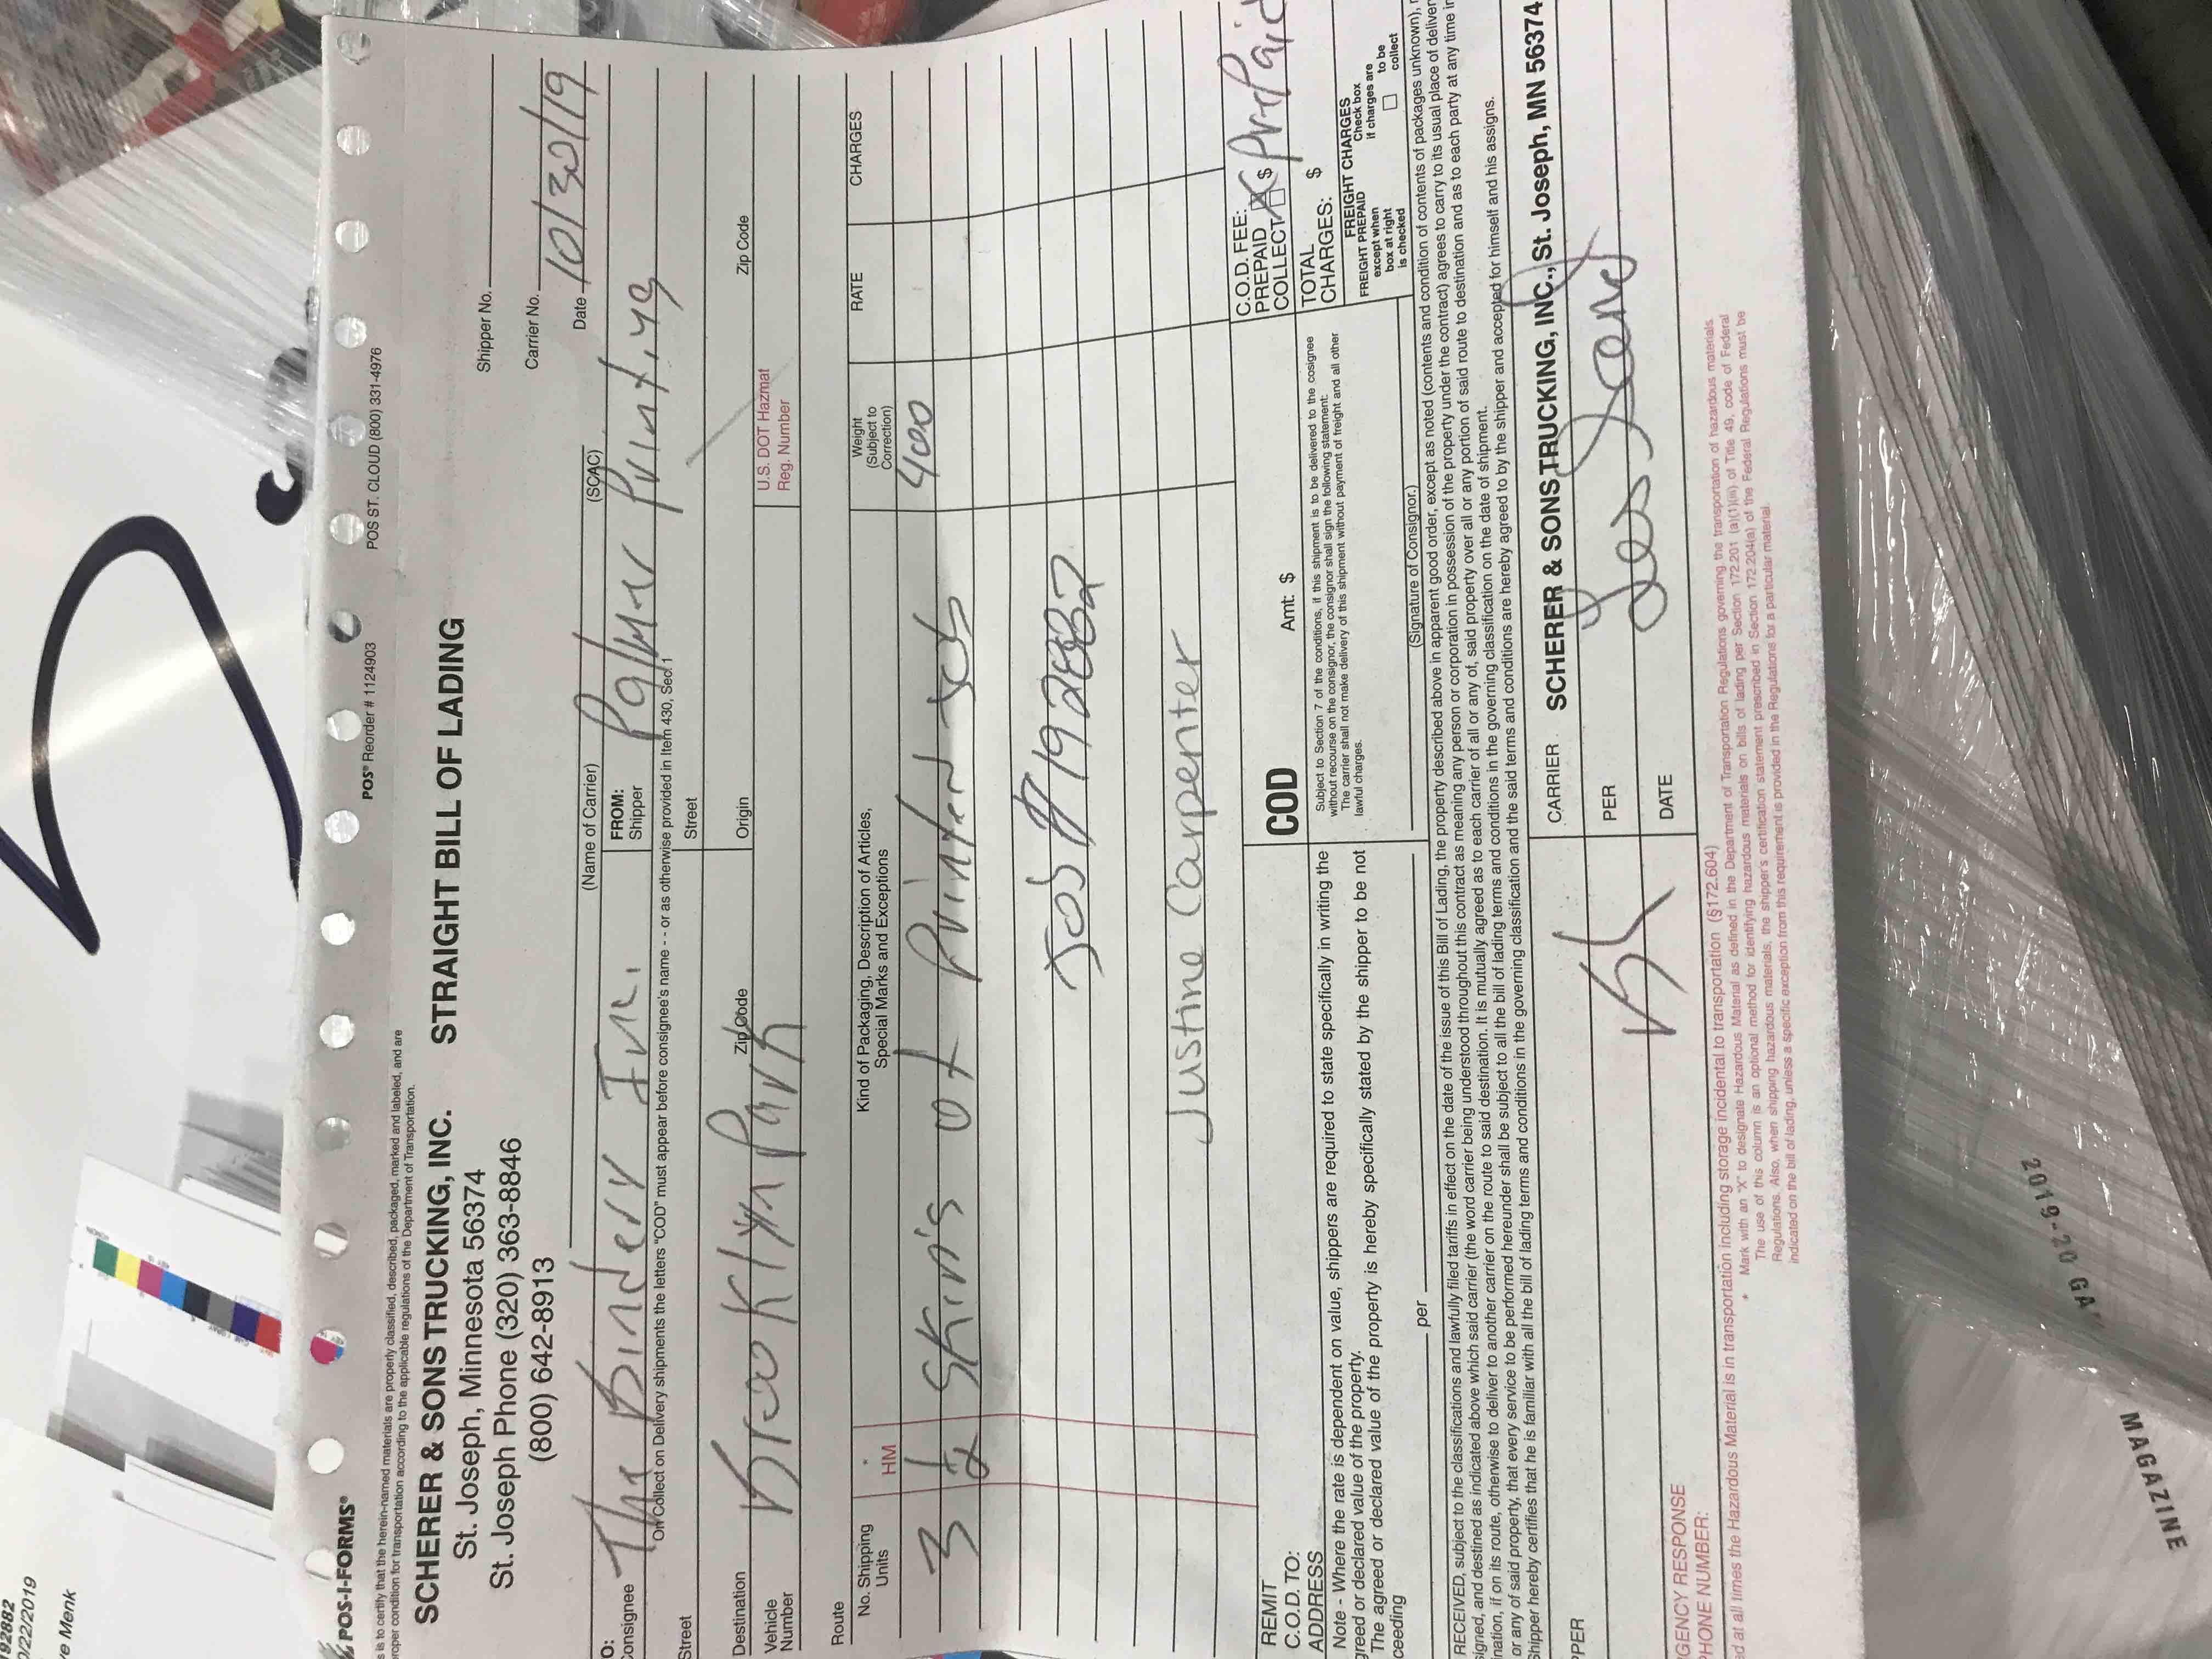 92882
0/22/2019
ve Menk
POS-I-FORMS®
POS® Reorder # 1124903
POS ST. CLOUD (800) 331-4976
s is to certify that the herein-named materials are properly classified, described, packaged, marked and labeled, and are
roper condition for transportation according to the applicable regulations of the Department of Transportation.
SCHERER & SONS TRUCKING, INC.
STRAIGHT BILL OF LADING
St. Joseph, Minnesota 56374
St. Joseph Phone (320) 363-8846
(800) 642-8913
Shipper No.
Carrier No.
Date 10/30/19
(Name of Carrier)
(SCAC)
O:
onsignee The Bindery Inc.
FROM:
Shipper Palmer Printing
On Collect on Delivery shipments the letters "COD" must appear before consignee's name - - or as otherwise provided in Item 430, Sec. 1
Street
Street
Destination Brooklyn Park
Zip Code
Origin
Zip Code
Vehicle
Number
U.S. DOT Hazmat
Reg. Number
Route
No. Shipping
Units
*
HM
Kind of Packaging, Description of Articles,
Special Marks and Exceptions
Weight
(Subject to
Correction)
RATE
CHARGES
3 Skins of Printed
4000
Job # 192882
Justine Carpenter
REMIT
C.O.D. TO:
ADDRESS
COD
Amt: $
C.O.D. FEE:
PREPAID
COLLECT $ X PrePaid
Note - Where the rate is dependent on value, shippers are required to state specifically in writing the
greed or declared value of the property.
The agreed or declared value of the property is hereby specifically stated by the shipper to be not
ceeding
per
Subject to Section 7 of the conditions, if this shipment is to be delivered to the cosignee
without recourse on the consignor, the consignor shall sign the following statement:
The carrier shall not make delivery of this shipment without payment of freight and all other
lawful charges.
(Signature of Consignor.)
TOTAL
CHARGES: $
FREIGHT CHARGES
FREIGHT PREPAID
except when
box at right
is checked
Check box
if charges are
to be
collect
RECEIVED, subject to the classifications and lawfully filed tariffs in effect on the date of the issue of this Bill of Lading, the property described above in apparent good order, except as noted (contents and condition of contents of packages unknown),
signed, and destined as indicated above which said carrier (the word carrier being understood throughout this contract as meaning any person or corporation in possession of the property under the contract) agrees to carry to its usual place of deliver
nation, if on its route, otherwise to deliver to another carrier on the route to said destination. It is mutually agreed as to each carrier of all or any of, said property over all or any portion of said route to destination and as to each party at any time in
or any of said property, that every service to be performed hereunder shall be subject to all the bill of lading terms and conditions in the governing classification on the date of shipment.
Shipper hereby certifies that he is familiar with all the bill of lading terms and conditions in the governing classification and the said terms and conditions are hereby agreed to by the shipper and accepted for himself and his assigns.
CARRIER SCHERER & SONS TRUCKING, INC., St. Joseph, MN 56374
PPER
PER
DATE
GENCY RESPONSE
PHONE NUMBER:
ed at all times the Hazardous Material is in transportation including storage incidental to transportation (§172.604)
* Mark with an "X" to designate Hazardous Material as defined in the Department of Transportation Regulations governing the transportation of hazardous materials.
The use of this column is an optional method for identifying hazardous materials on bills of lading per Section 172.201 (a)(1)(iii) of Title 49, code of Federal
Regulations. Also, when shipping hazardous materials, the shipper's certification statement prescribed in Section 172.204(a) of the Federal Regulations must be
indicated on the bill of lading, unless a specific exception from this requirement is provided in the Regulations for a particular material.
2019-20 GA
MAGAZINE